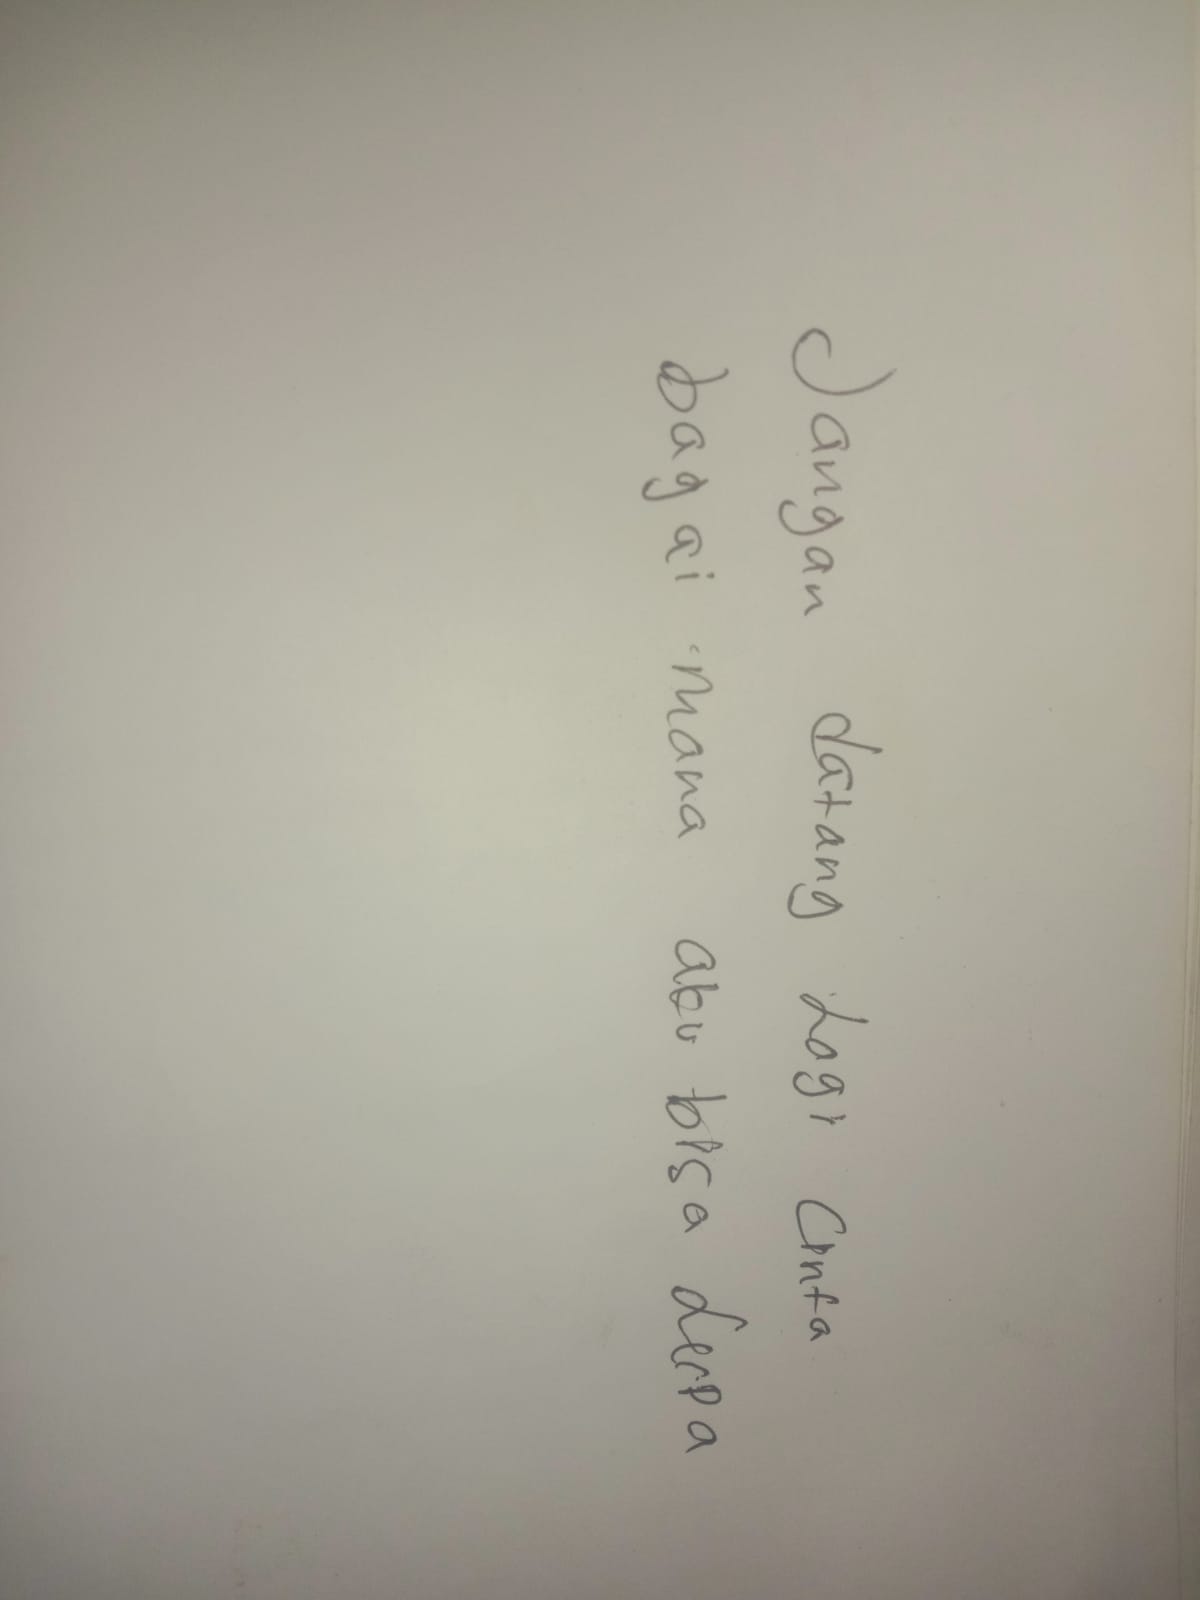 Jangan datang Lagi Cinta
bagai mana aku bisa derpa